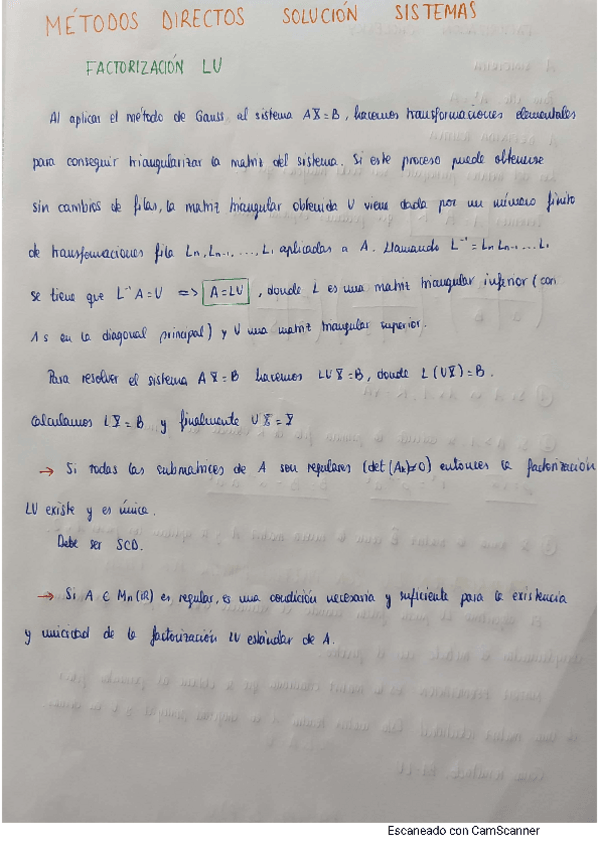 MÉTODOS DIRECTOS SOLUCIÓN SISTEMAS
FACTORIZACIÓN LU
Al aplicar el método de Gauss al sistema AX=B, hacemos transformaciones elementales
para conseguir triangularizar la matriz del sistema. Si este proceso puede obtenerse
sin cambios de filas, la matriz triangular obtenida U viene dada por un número finito
de transformaciones fila Ln, Ln-1, ..., L1 aplicadas a A. Llamando L⁻¹ = Ln Ln-1 ... L1
se tiene que L⁻¹A=U => A=LU, donde L es una matriz triangular inferior (con
1s en la diagonal principal) y U una matriz triangular superior.
Para resolver el sistema AX=B hacemos LUX=B, donde L(UX)=B.
Calculamos LY=B y finalmente UX=Y
→ Si todas las submatrices de A son regulares (det(Ak)≠0) entonces la factorización
LU existe y es única.
Debe ser SCD.
→ Si A ∈ Mn(IR) es regular, es una condición necesaria y suficiente para la existencia
y unicidad de la factorización LU estándar de A.
Escaneado con CamScanner